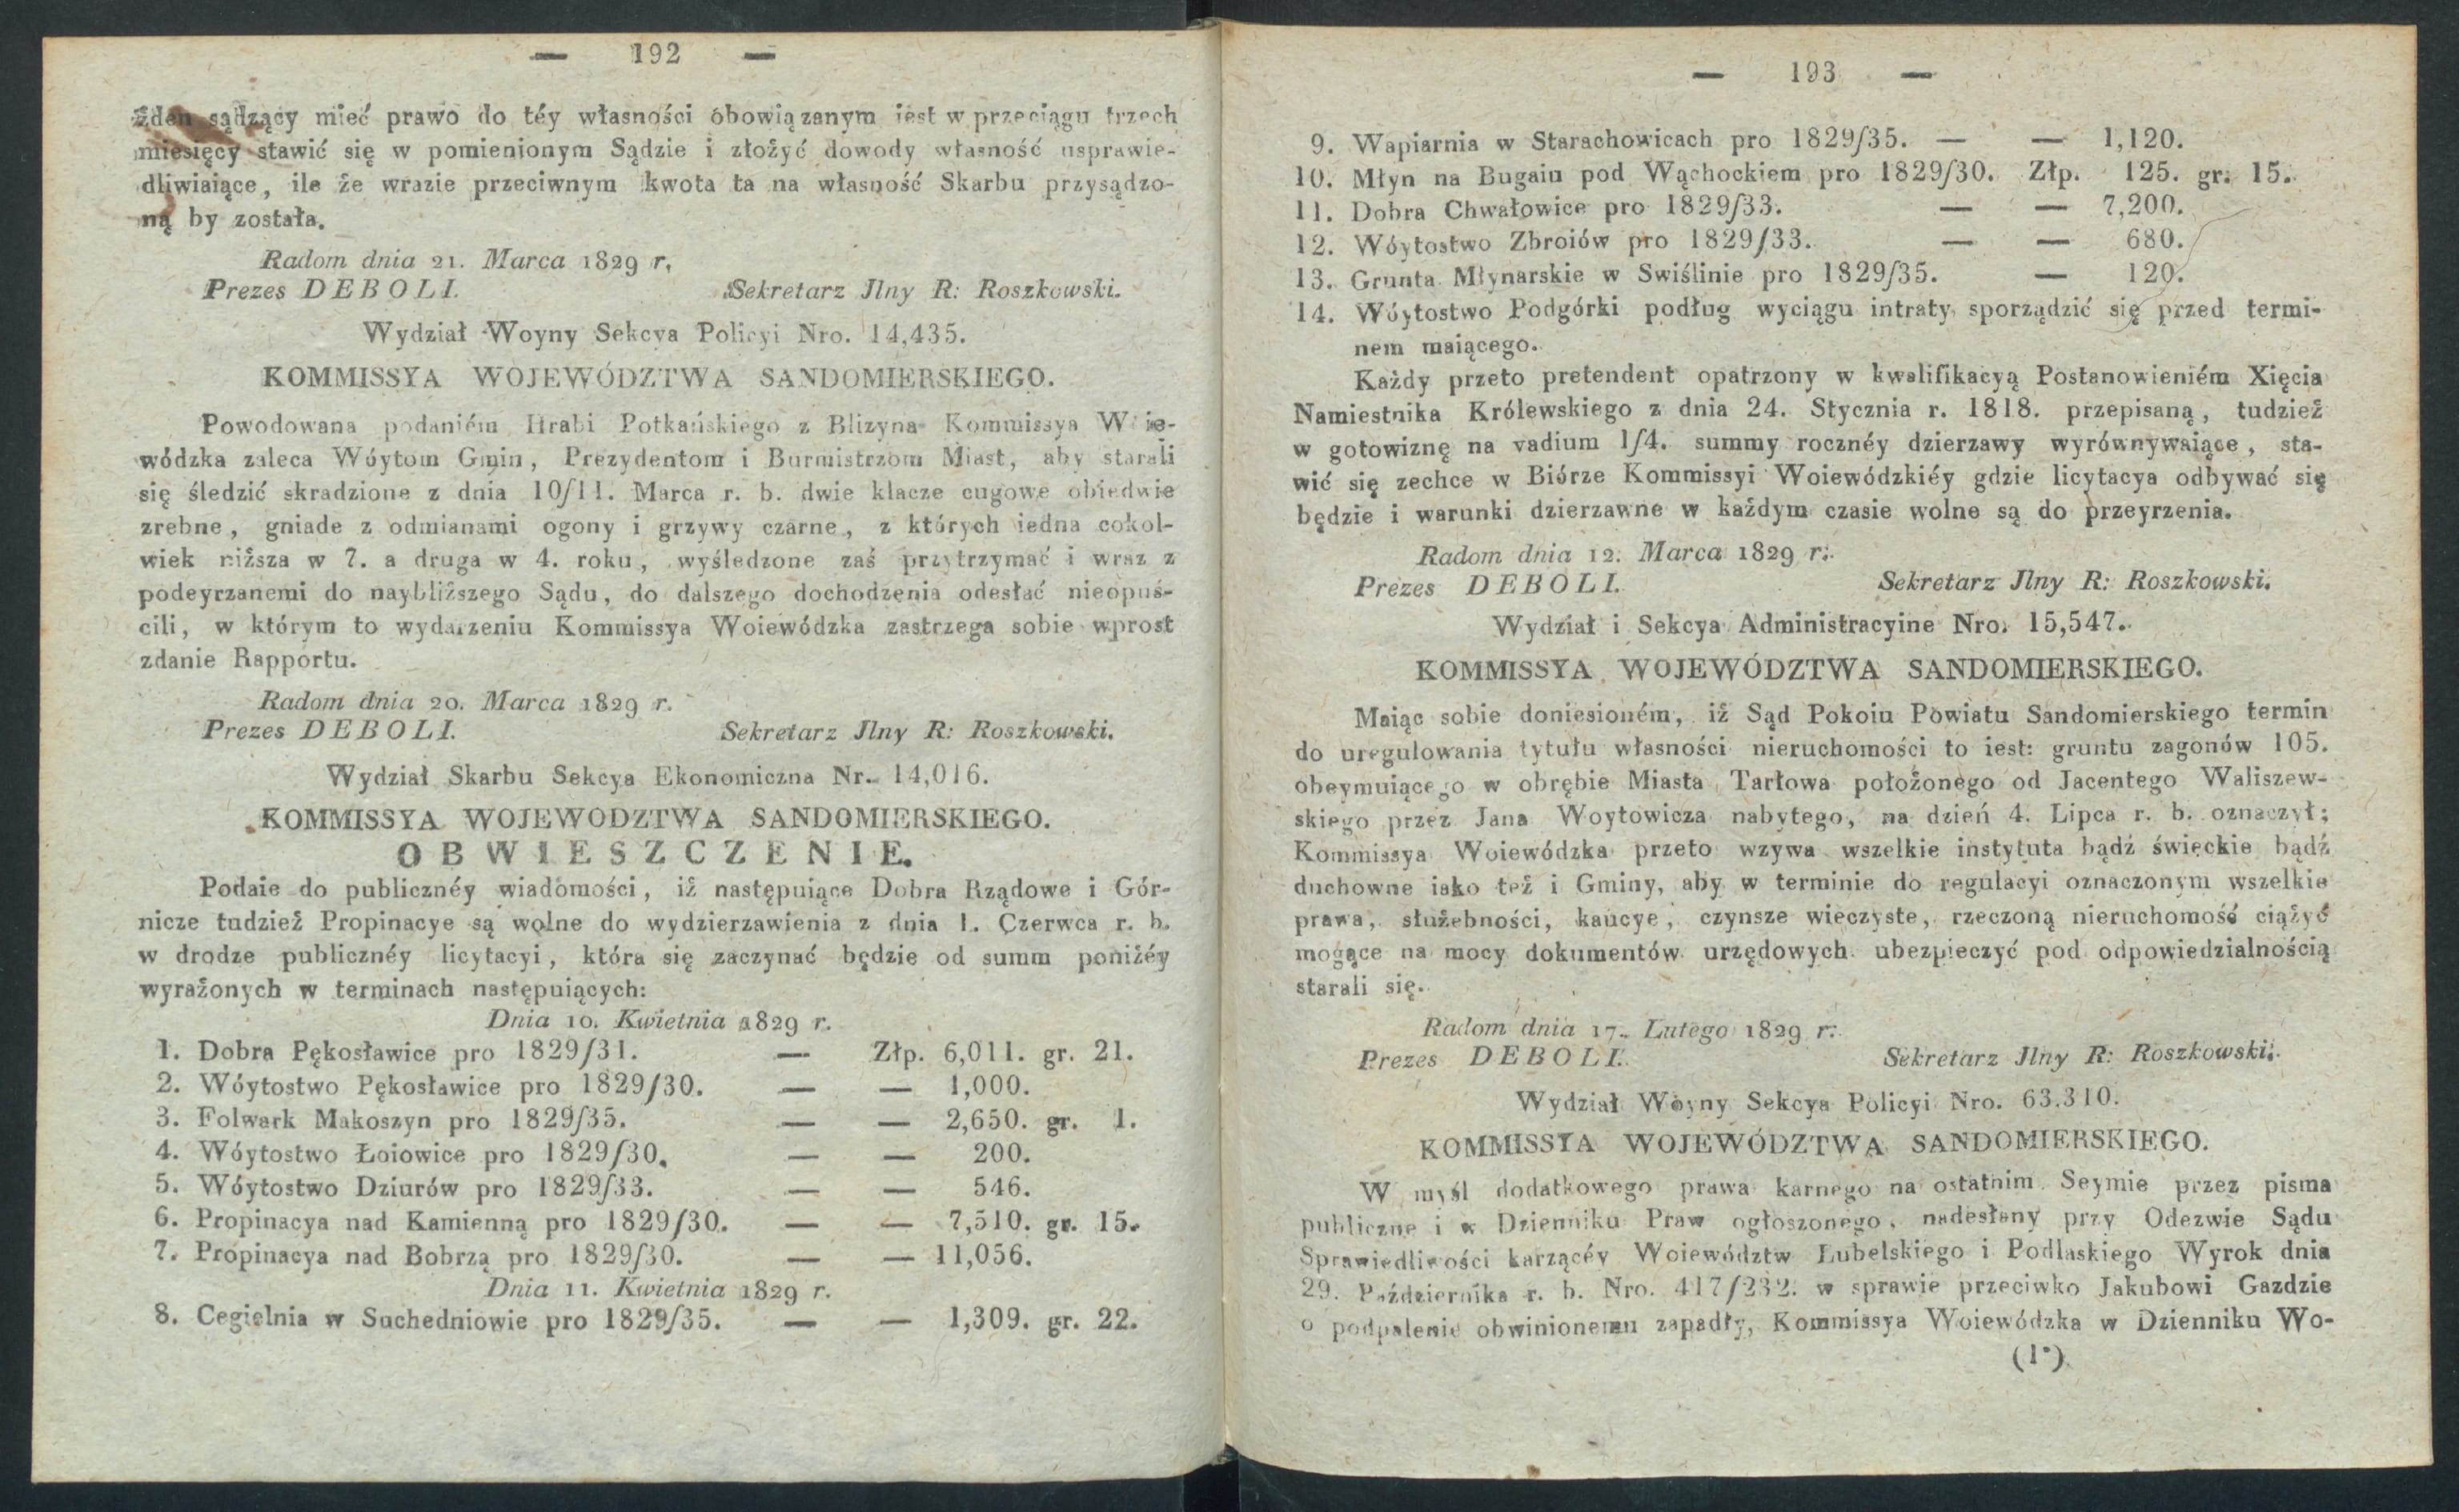 — 192 —
żden sądzący mieć prawo do téy własności obowiązanym iest w przeciągu trzech
miesięcy stawić się w pomienionym Sądzie i złożyć dowody własność usprawie-
dliwiaiące, ile że wrazie przeciwnym kwota ta na własność Skarbu przysądzo-
ną by została.
Radom dnia 21. Marca 1829 r.
Prezes DEBOLI. Sekretarz Jlny R: Roszkowski.
Wydział Woyny Sekcya Policyi Nro. 14,435.
KOMMISSYA WOJEWÓDZTWA SANDOMIERSKIEGO.
Powodowana podaniém Hrabi Potkańskiego z Blizyna Kommissya Woie-
wódzka zaleca Wóytom Gmin, Prezydentom i Burmistrzom Miast, aby starali
się śledzić skradzione z dnia 10/11. Marca r. b. dwie klacze cugowe obiedwie
zrebne, gniade z odmianami ogony i grzywy czarne, z których iedna cokol-
wiek niższa w 7. a druga w 4. roku, wyśledzone zaś przytrzymać i wraz z
podeyrzanemi do naybliższego Sądu, do dalszego dochodzenia odesłać nieopuś-
cili, w którym to wydarzeniu Kommissya Woiewódzka zastrzega sobie wprost
zdanie Rapportu.
Radom dnia 20. Marca 1829 r.
Prezes DEBOLI. Sekretarz Jlny R: Roszkowski.
Wydział Skarbu Sekcya Ekonomiczna Nr. 14,016.
KOMMISSYA WOJEWODZTWA SANDOMIERSKIEGO.
OBWIESZCZENIE.
Podaie do publicznéy wiadomości, iż następuiące Dobra Rządowe i Gór-
nicze tudzież Propinacye są wolne do wydzierzawienia z dnia 1. Czerwca r. b.
w drodze publicznéy licytacyi, która się zaczynać będzie od summ poniżéy
wyrażonych w terminach następuiących:
Dnia 10. Kwietnia 1829 r.
1. Dobra Pękosławice pro 1829/31. — Złp. 6,011. gr. 21.
2. Wóytostwo Pękosławice pro 1829/30. — — 1,000.
3. Folwark Makoszyn pro 1829/35. — — 2,650. gr. 1.
4. Wóytostwo Łoiowice pro 1829/30. — — 200.
5. Wóytostwo Dziurów pro 1829/33. — — 546.
6. Propinacya nad Kamienną pro 1829/30. — — 7,510. gr. 15.
7. Propinacya nad Bobrzą pro 1829/30. — — 11,056.
Dnia 11. Kwietnia 1829 r.
8. Cegielnia w Suchedniowie pro 1829/35. — — 1,309. gr. 22.
— 193 —
9. Wapiarnia w Starachowicach pro 1829/35. — — 1,120.
10. Młyn na Bugaiu pod Wąchockiem pro 1829/30. Złp. 125. gr. 15.
11. Dobra Chwałowice pro 1829/33. — — 7,200.
12. Wóytostwo Zbroiów pro 1829/33. — — 680.
13. Grunta Młynarskie w Swiślinie pro 1829/35. — 120.
14. Wóytostwo Podgórki podług wyciągu intraty sporządzić się przed termi-
nem maiącego.
Każdy przeto pretendent opatrzony w kwalifikacyą Postanowieniém Xięcia
Namiestnika Królewskiego z dnia 24. Stycznia r. 1818. przepisaną, tudzież
w gotowiznę na vadium 1/4. summy rocznéy dzierzawy wyrównywaiące, sta-
wić się zechce w Biórze Kommissyi Woiewódzkiéy gdzie licytacya odbywać się
będzie i warunki dzierzawne w każdym czasie wolne są do przeyrzenia.
Radom dnia 12. Marca 1829 r.
Prezes DEBOLI. Sekretarz Jlny R: Roszkowski.
Wydział i Sekcya Administracyine Nro. 15,547.
KOMMISSYA WOJEWÓDZTWA SANDOMIERSKIEGO.
Maiąc sobie doniesioném, iż Sąd Pokoiu Powiatu Sandomierskiego termin
do uregulowania tytułu własności nieruchomości to iest: gruntu zagonów 105.
obeymuiącego w obrębie Miasta Tarłowa położonego od Jacentego Waliszew-
skiego przez Jana Woytowicza nabytego, na dzień 4. Lipca r. b. oznaczył;
Kommissya Woiewódzka przeto wzywa wszelkie instytuta bądź świeckie bądź
duchowne iako też i Gminy, aby w terminie do regulacyi oznaczonym wszelkie
prawa, służebności, kaucye, czynsze wieczyste, rzeczoną nieruchomość ciążyć
mogące na mocy dokumentów urzędowych ubezpieczyć pod odpowiedzialnością
starali się.
Radom dnia 17. Lutego 1829 r.
Prezes DEBOLI. Sekretarz Jlny R: Roszkowski.
Wydział Woyny Sekcya Policyi Nro. 63.310.
KOMMISSYA WOJEWÓDZTWA SANDOMIERSKIEGO.
W myśl dodatkowego prawa karnego na ostatnim Seymie przez pisma
publiczne i w Dzienniku Praw ogłoszonego, nadesłany przy Odezwie Sądu
Sprawiedliwości karzącéy Woiewództw Lubelskiego i Podlaskiego Wyrok dnia
29. Października r. b. Nro. 417/232. w sprawie przeciwko Jakubowi Gazdzie
o podpalenie obwinionemu zapadły, Kommissya Woiewódzka w Dzienniku Wo-
(1*)